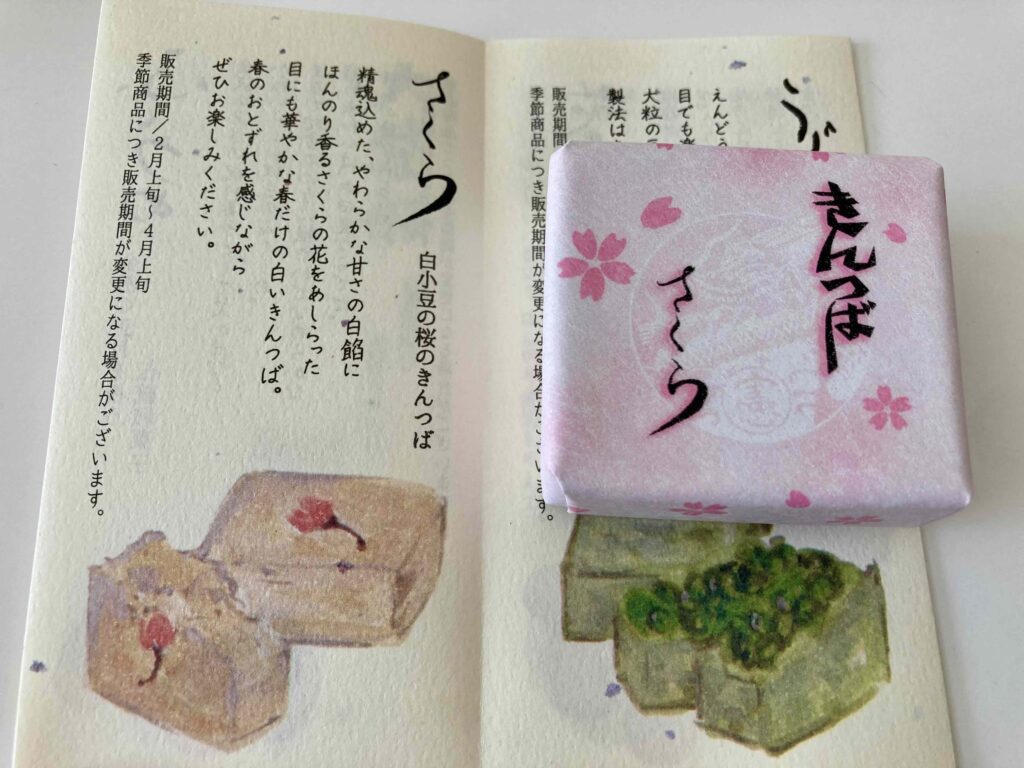 さくら
白小豆の桜のきんつば
精魂込めた、やわらかな甘さの白餡に
ほんのり香るさくらの花をあしらった
目にも華やかな春だけの白いきんつば。
春のおとずれを感じながら
ぜひお楽しみください。
販売期間／２月上旬～４月上旬
季節商品につき販売期間が変更になる場合がございます。
きんつば
さくら
う
えんどう
目でも
大粒の
製法は
販売期間
季節商品につき販売期間が変更になる場合がございます。